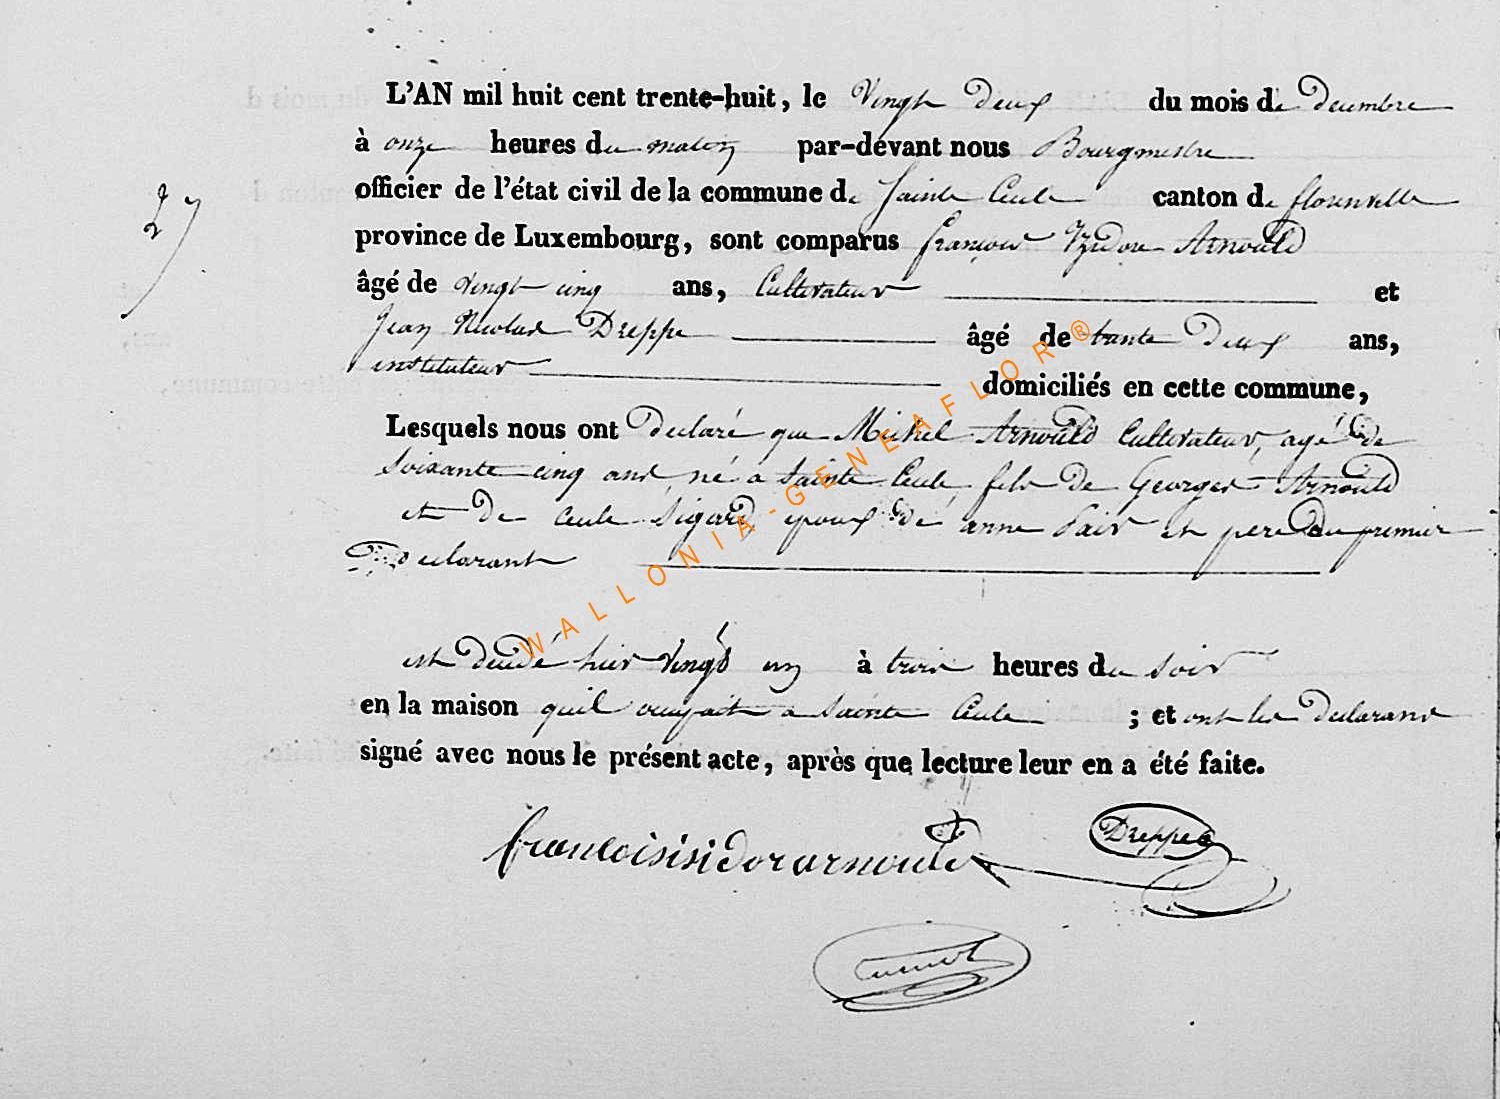 L'AN mil huit cent trente-huit, le Vingt Deux du mois de Decembre
à onze heures du matin par-devant nous Bourgmestre
officier de l'état civil de la commune de Sainte Cecile canton de florenville
27
province de Luxembourg, sont comparus françois Yzidore Arnould
âgé de vingt cinq ans, Cultivateur et
Jean Nicolas Dreppe âgé de trente Deux ans,
instituteur domiciliés en cette commune,
Lesquels nous ont Declaré que Michel Arnould Cultivateur, agé de
Soixante cinq ans, né a Sainte Cecile, fils de Georges Arnould
et de Cecile Sigard, epoux de anne Pair et pere du premier
Declarant
est decédé hier vingt un à trois heures du soir
en la maison quil occupait a Sainte Cecile ; et ont les declarans
signé avec nous le présent acte, après que lecture leur en a été faite.
francoisisidorarnould Dreppe
WALLONIA-GENEAFLOR®